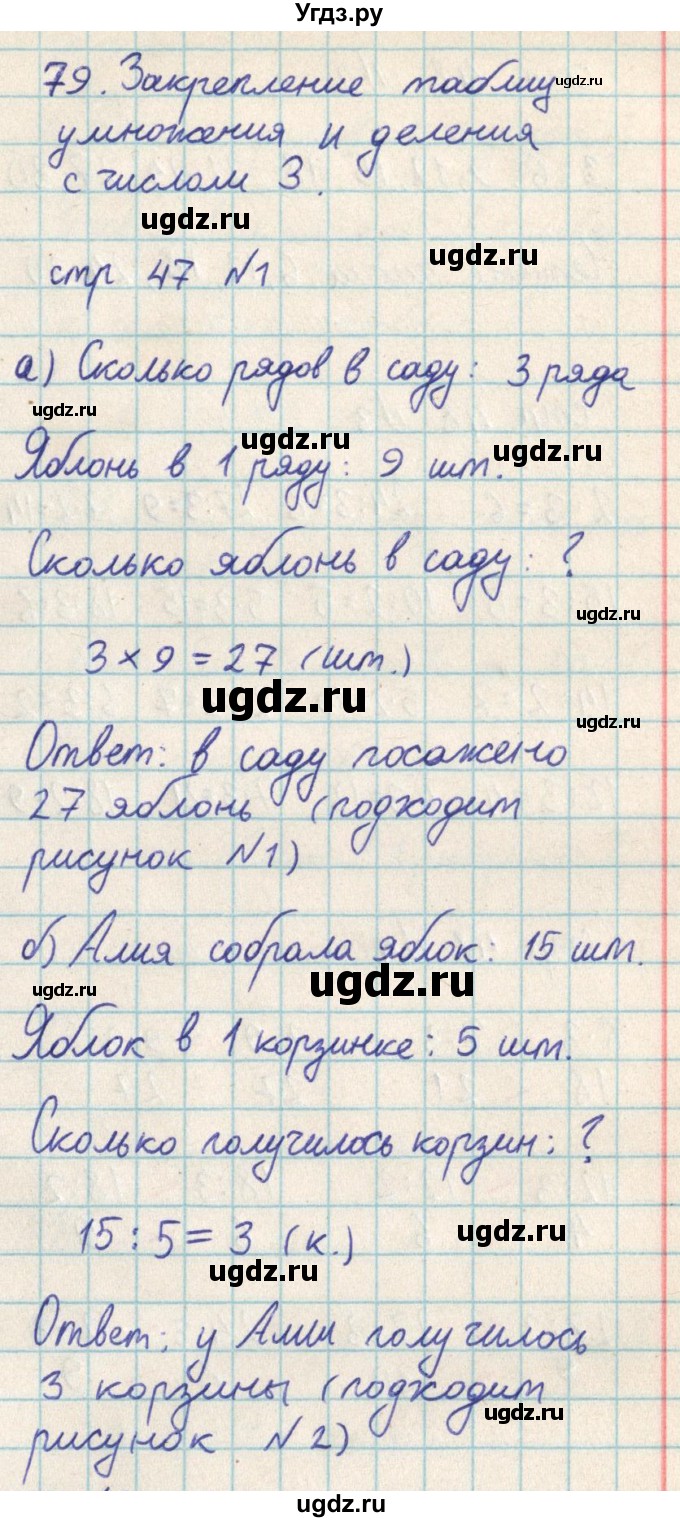 Угдз.ру
79. Закрепление таблиц
ugdz.ru
умножения и деления
с числом 3.
ugdz.ru
ugdz.ru
стр 47 №1
а) Сколько рядов в саду: 3 ряда
ugdz.ru
ugdz.ru
Яблонь в 1 ряду: 9 шт.
ugdz.ru
Сколько яблонь в саду: ?
ugdz.ru
3 × 9 = 27 (шт.)
ugdz.ru
ugdz.ru
Ответ: в саду посажено
27 яблонь (подходит
рисунок №1)
б) Алия собрала яблок: 15 шт.
ugdz.ru
ugdz.ru
Яблок в 1 корзинке: 5 шт.
Сколько получилось корзин: ?
15 : 5 = 3 (к.)
ugdz.ru
ugdz.ru
Ответ: у Алии получилось
3 корзины (подходит
ugdz.ru
рисунок №2)
ugdz.ru